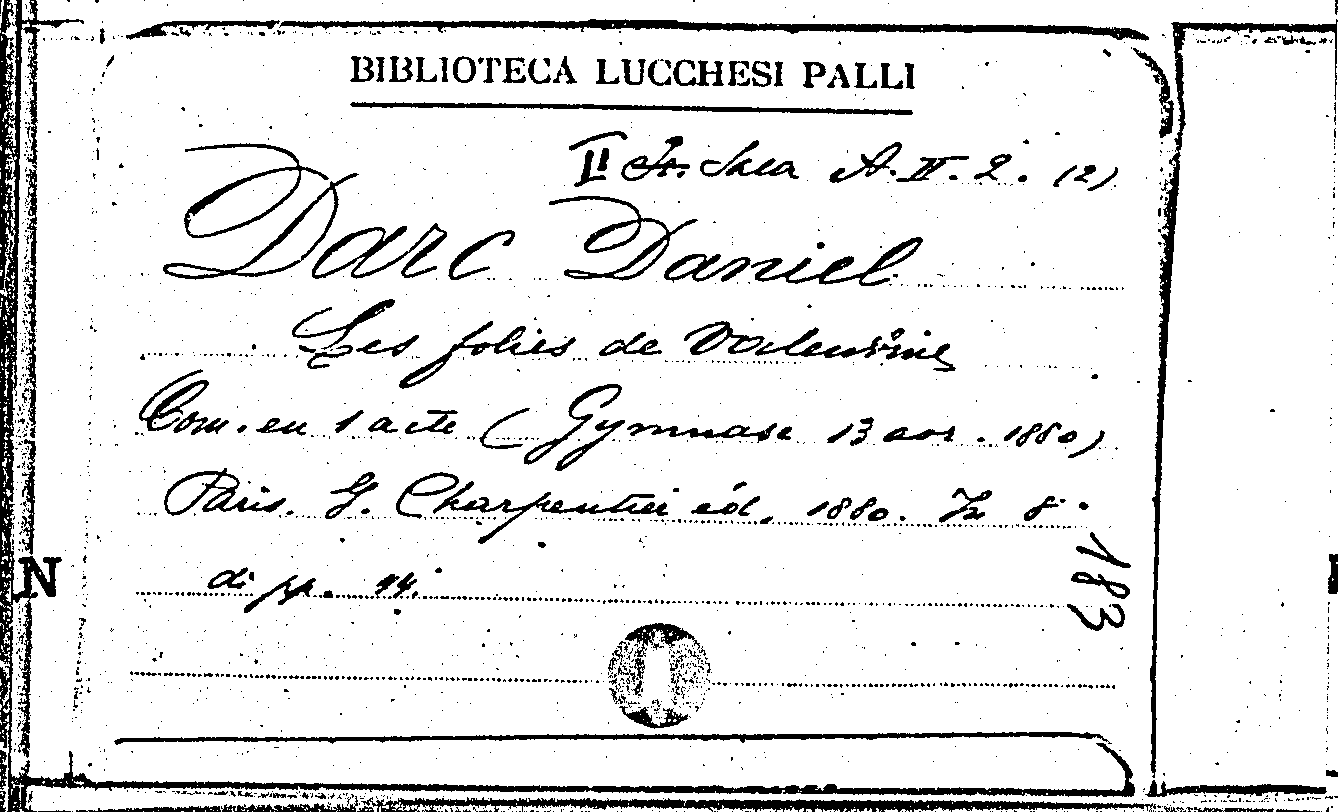 BIBLIOTECA LUCCHESI PALLI
II A. II. 2. (2)
Darc Daniel
Les folies de Valentine
Com. en 1 acte (Gymnase 13 avr. 1880)
Paris. G. Charpentier éd. 1880. In 8°
di pp. 44.
183
N